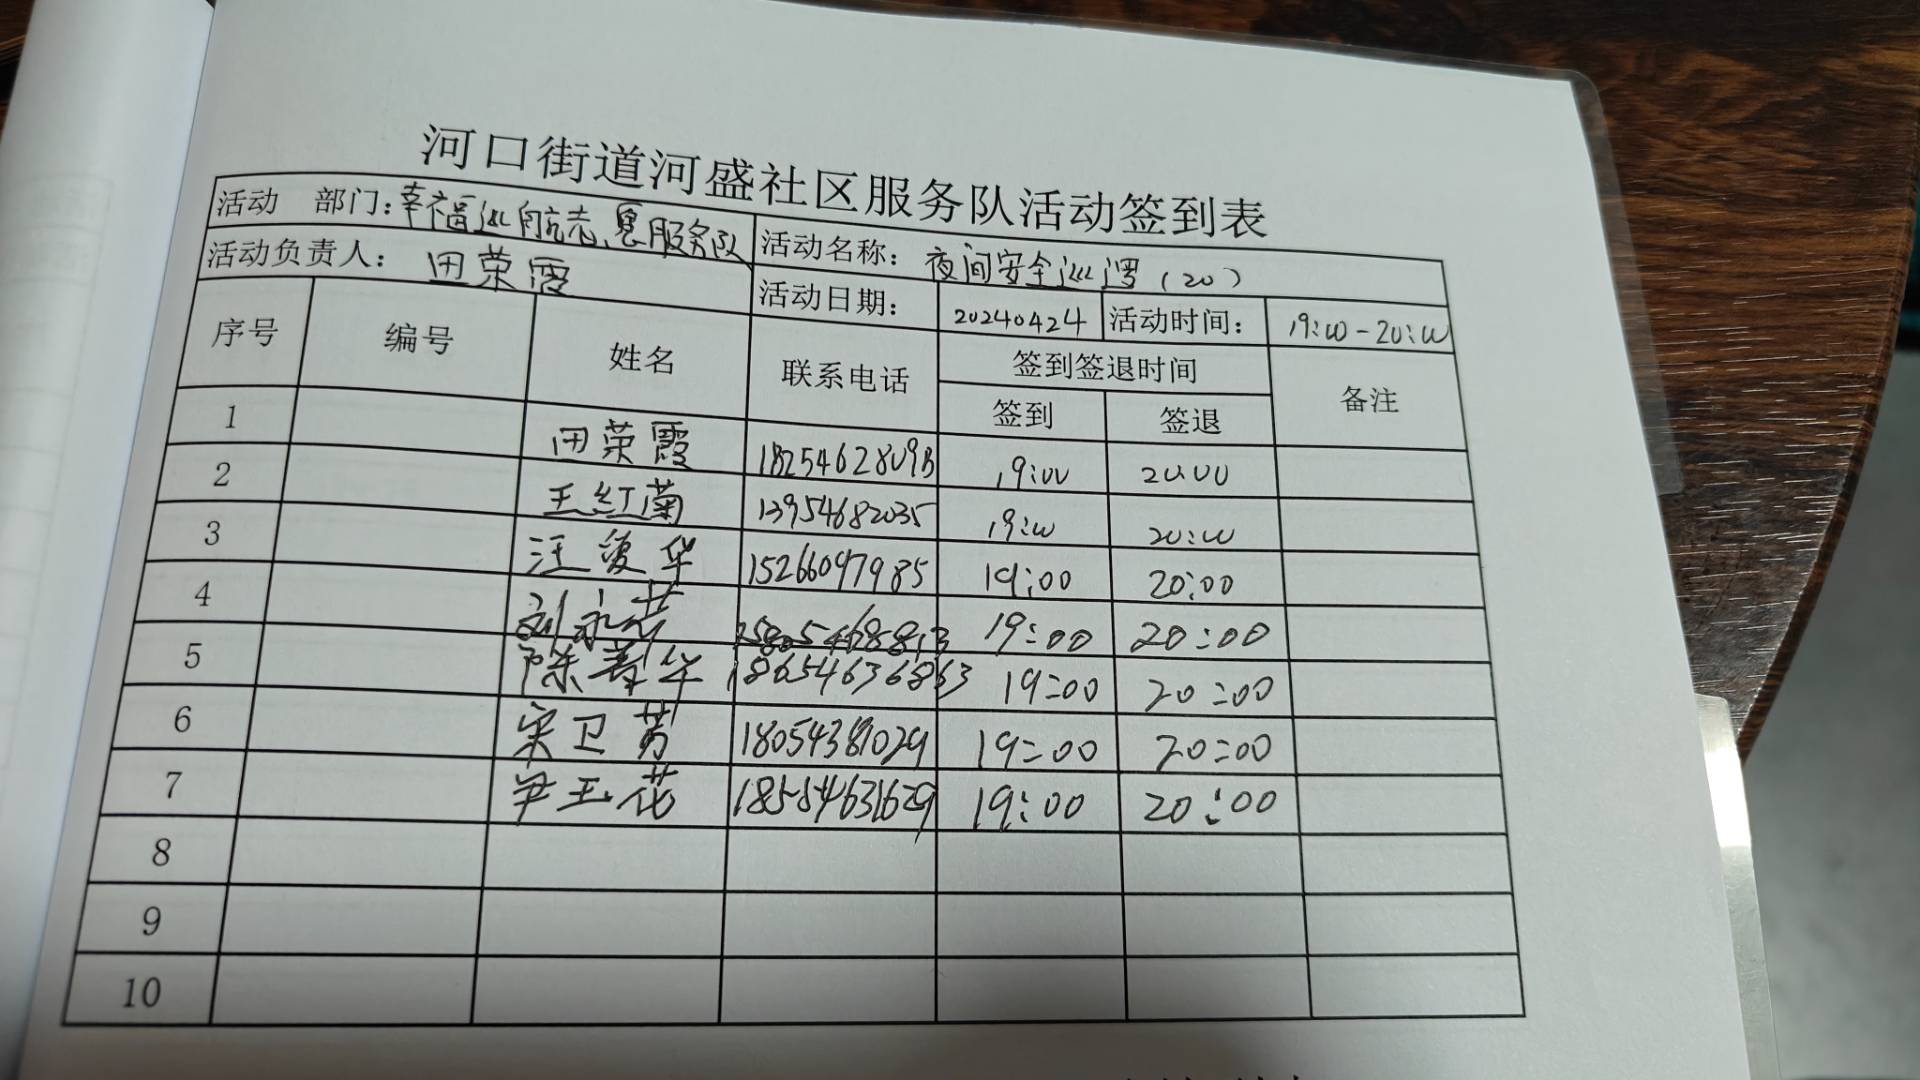 河口街道河盛社区服务队活动签到表
活动 部门:幸福巡航志愿服务队 活动名称: 夜间安全巡逻(20)
活动负责人: 田荣霞 活动日期: 20240424 活动时间: 19:00-20:00
序号 编号 姓名 联系电话 签到签退时间 备注
签到 签退
1 田荣霞 19:00 20:00
2 王红菊 13954682035 19:00 20:00
3 汪爱华 15266097985 19:00 20:00
4 刘永芳 19:00 20:00
5 陈春华 18654636863 19:00 20:00
6 宋卫芳 18054381029 19:00 20:00
7 尹玉花 18554631629 19:00 20:00
8
9
10